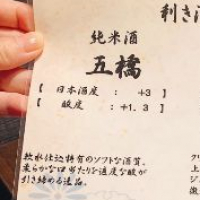 利き酒
純米酒
五橋
【 日本酒度 : +3 】
【 酸度 : +1.3 】
軟水仕込特有のソフトな酒質。
柔らかな口当たりと適度な酸が
引き締める逸品。